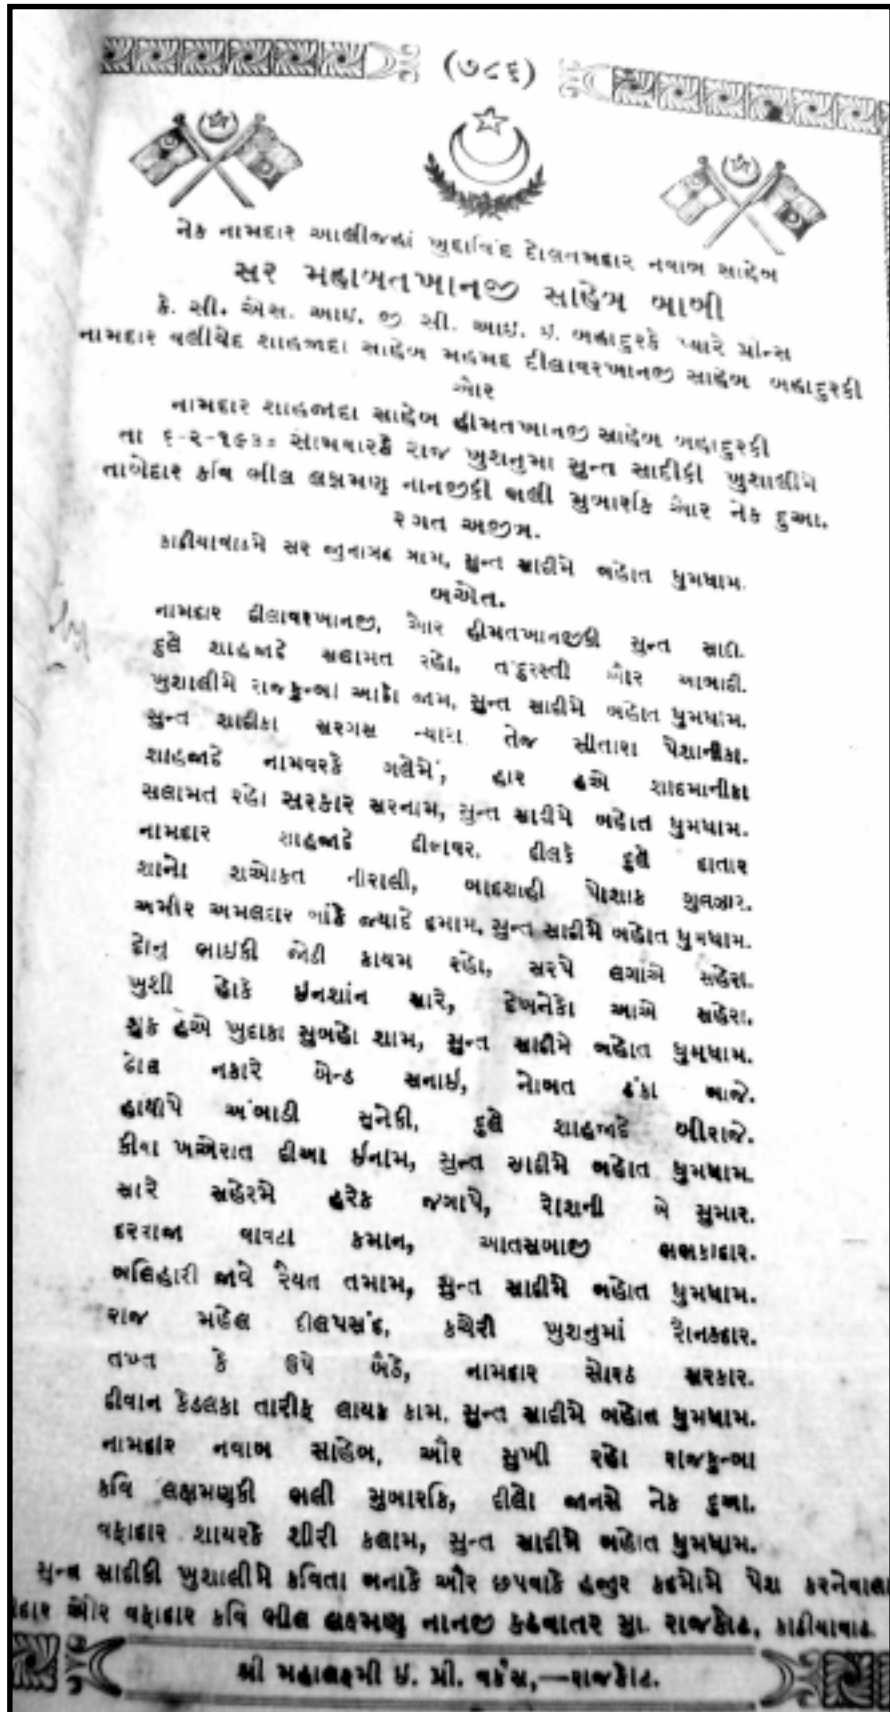 (૭૮૬)
નેક નામદાર આલીજહાં ખુદાવિંદ દોલતમદાર નવાબ સાહેબ
સર મહાબતખાનજી સાહેબ બાબી
કે. સી. એસ. આઇ. જી સી. આઇ. ઇ. બહાદુરકે પ્યારે પ્રીન્સ
નામદાર વલીયેદ શાહજાદા સાહેબ મહમદ દીલાવરખાનજી સાહેબ બહાદુરકી
ઓર
નામદાર શાહજાદા સાહેબ હીમતખાનજી સાહેબ બહાદુરકી
તા ૬-૨-૧૯૩૦ સોમવારકે રાજ ખુશનુમા સુન્ત સાદીકી ખુશાલીમે
તાબેદાર કવિ ભીલ લક્ષમણ નાનજીકી ભલી મુબારકિ ઓર નેક દુઆ.
રગત અજીબ.
કાઠીયાવાડમે સર જુનાગઢ ગામ, સુન્ત સાદીમે બહોત ધુમધામ.
બએત.
નામદાર દીલાવરખાનજી, ઓર હીમતખાનજીકી સુન્ત સાદી.
દુલે શાહજાદે સલામત રહો, તંદુરસ્તી ઔર આબાદી.
ખુશાલીમે રાજકુન્બા આઠો જામ, સુન્ત સાદીમે બહોત ધુમધામ.
સુન્ત શાદીકા સરગસ ન્યારા તેજ સીતારા પેશાનીકા.
શાહજાદે નામવરકે ગલેમેં, હાર હએ શાદમાનીકા
સલામત રહો સરકાર સરનામ, સુન્ત સાદીમે બહોત ધુમધામ.
નામદાર શાહજાદે દીલાવર, દીલકે દુલે દાતાર
શાનો શઓકત નીરાલી, બાદશાહી પોશાક ગુલઝાર.
અમીર અમલદાર બાંકે જ્યાદે દમામ, સુન્ત સાદીમે બહોત ધુમધામ.
દોનુ ભાઇકી જોડી કાયમ રહો, સરપે લગાએ સહેરા.
ખુશી હોકે ઇનશાંન સારે, દેખનેકો આએ સહેરા.
શુક્ર હેએ ખુદાકા સુબહો શામ, સુન્ત સાદીમે બહોત ધુમધામ.
ઢોલ નકારે બેન્ડ સનાઇ, નોબત ડંકા બાજે.
હાથીપે અંબાડી સુનેકી, દુલે શાહજાદે બીરાજે.
કીયા ખએરાત દીઆ ઇનામ, સુન્ત સાદીમે બહોત ધુમધામ.
સારે સહેરમે હરેક જગાપે, રોશની બે સુમાર.
દરવાજા વાવટા કમાન, આતસબાજી ભભકાદાર.
બલિહારી જાવે રૈયત તમામ, સુન્ત સાદીમે બહોત ધુમધામ.
રાજ મહેલ દીલપસંદ, કચેરી ખુશનુમાં રૌનકદાર.
તખ્ત કે ઉપે બેઠે, નામદાર સોરઠ સરકાર.
દીવાન કેડલકા તારીફ લાયક કામ, સુન્ત સાદીમે બહોત ધુમધામ.
નામદાર નવાબ સાહેબ, ઔર સુખી રહો રાજકુન્બા
કવિ લક્ષમણકી ભલી મુબારકિ, દીલો જાનસે નેક દુઆ.
વફાદાર શાયરકે શીરી કલામ, સુન્ત સાદીમે બહોત ધુમધામ.
સુન્ત સાદીકી ખુશાલીમે કવિતા બનાકે ઔર છપવાકે હજુર કદમોમે પેશ કરનેવાલા
ઓર વફાદાર કવિ ભીલ લક્ષમણ નાનજી કઢવાતર મુ. રાજકોટ, કાઠીયાવાડ.
શ્રી મહાલક્ષ્મી ઇ. પ્રી. વર્કસ,—રાજકોટ.